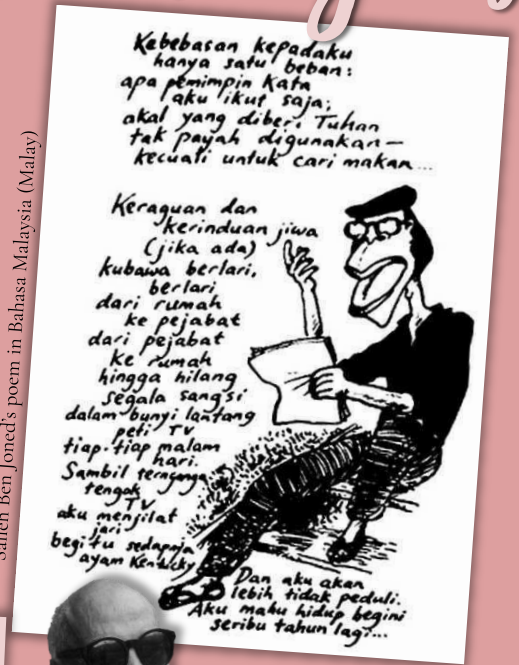 Kebebasan kepadaku
hanya satu beban:
apa pemimpin kata
aku ikut saja;
akal yang diberi Tuhan
tak payah digunakan—
kecuali untuk cari makan...
Keraguan dan
kerinduan jiwa
(jika ada)
kubawa berlari,
berlari
dari rumah
ke pejabat
dari pejabat
ke rumah
hingga hilang
segala sangsi
dalam bunyi lantang
peti TV
tiap-tiap malam
hari.
Sambil ternganga
tengok
TV
aku menjilat
jari
begitu sedapnya
ayam Kentucky
Dan aku akan
lebih tidak peduli.
Aku mahu hidup begini
seribu tahun lagi...
Salleh Ben Joned's poem in Bahasa Malaysia (Malay)